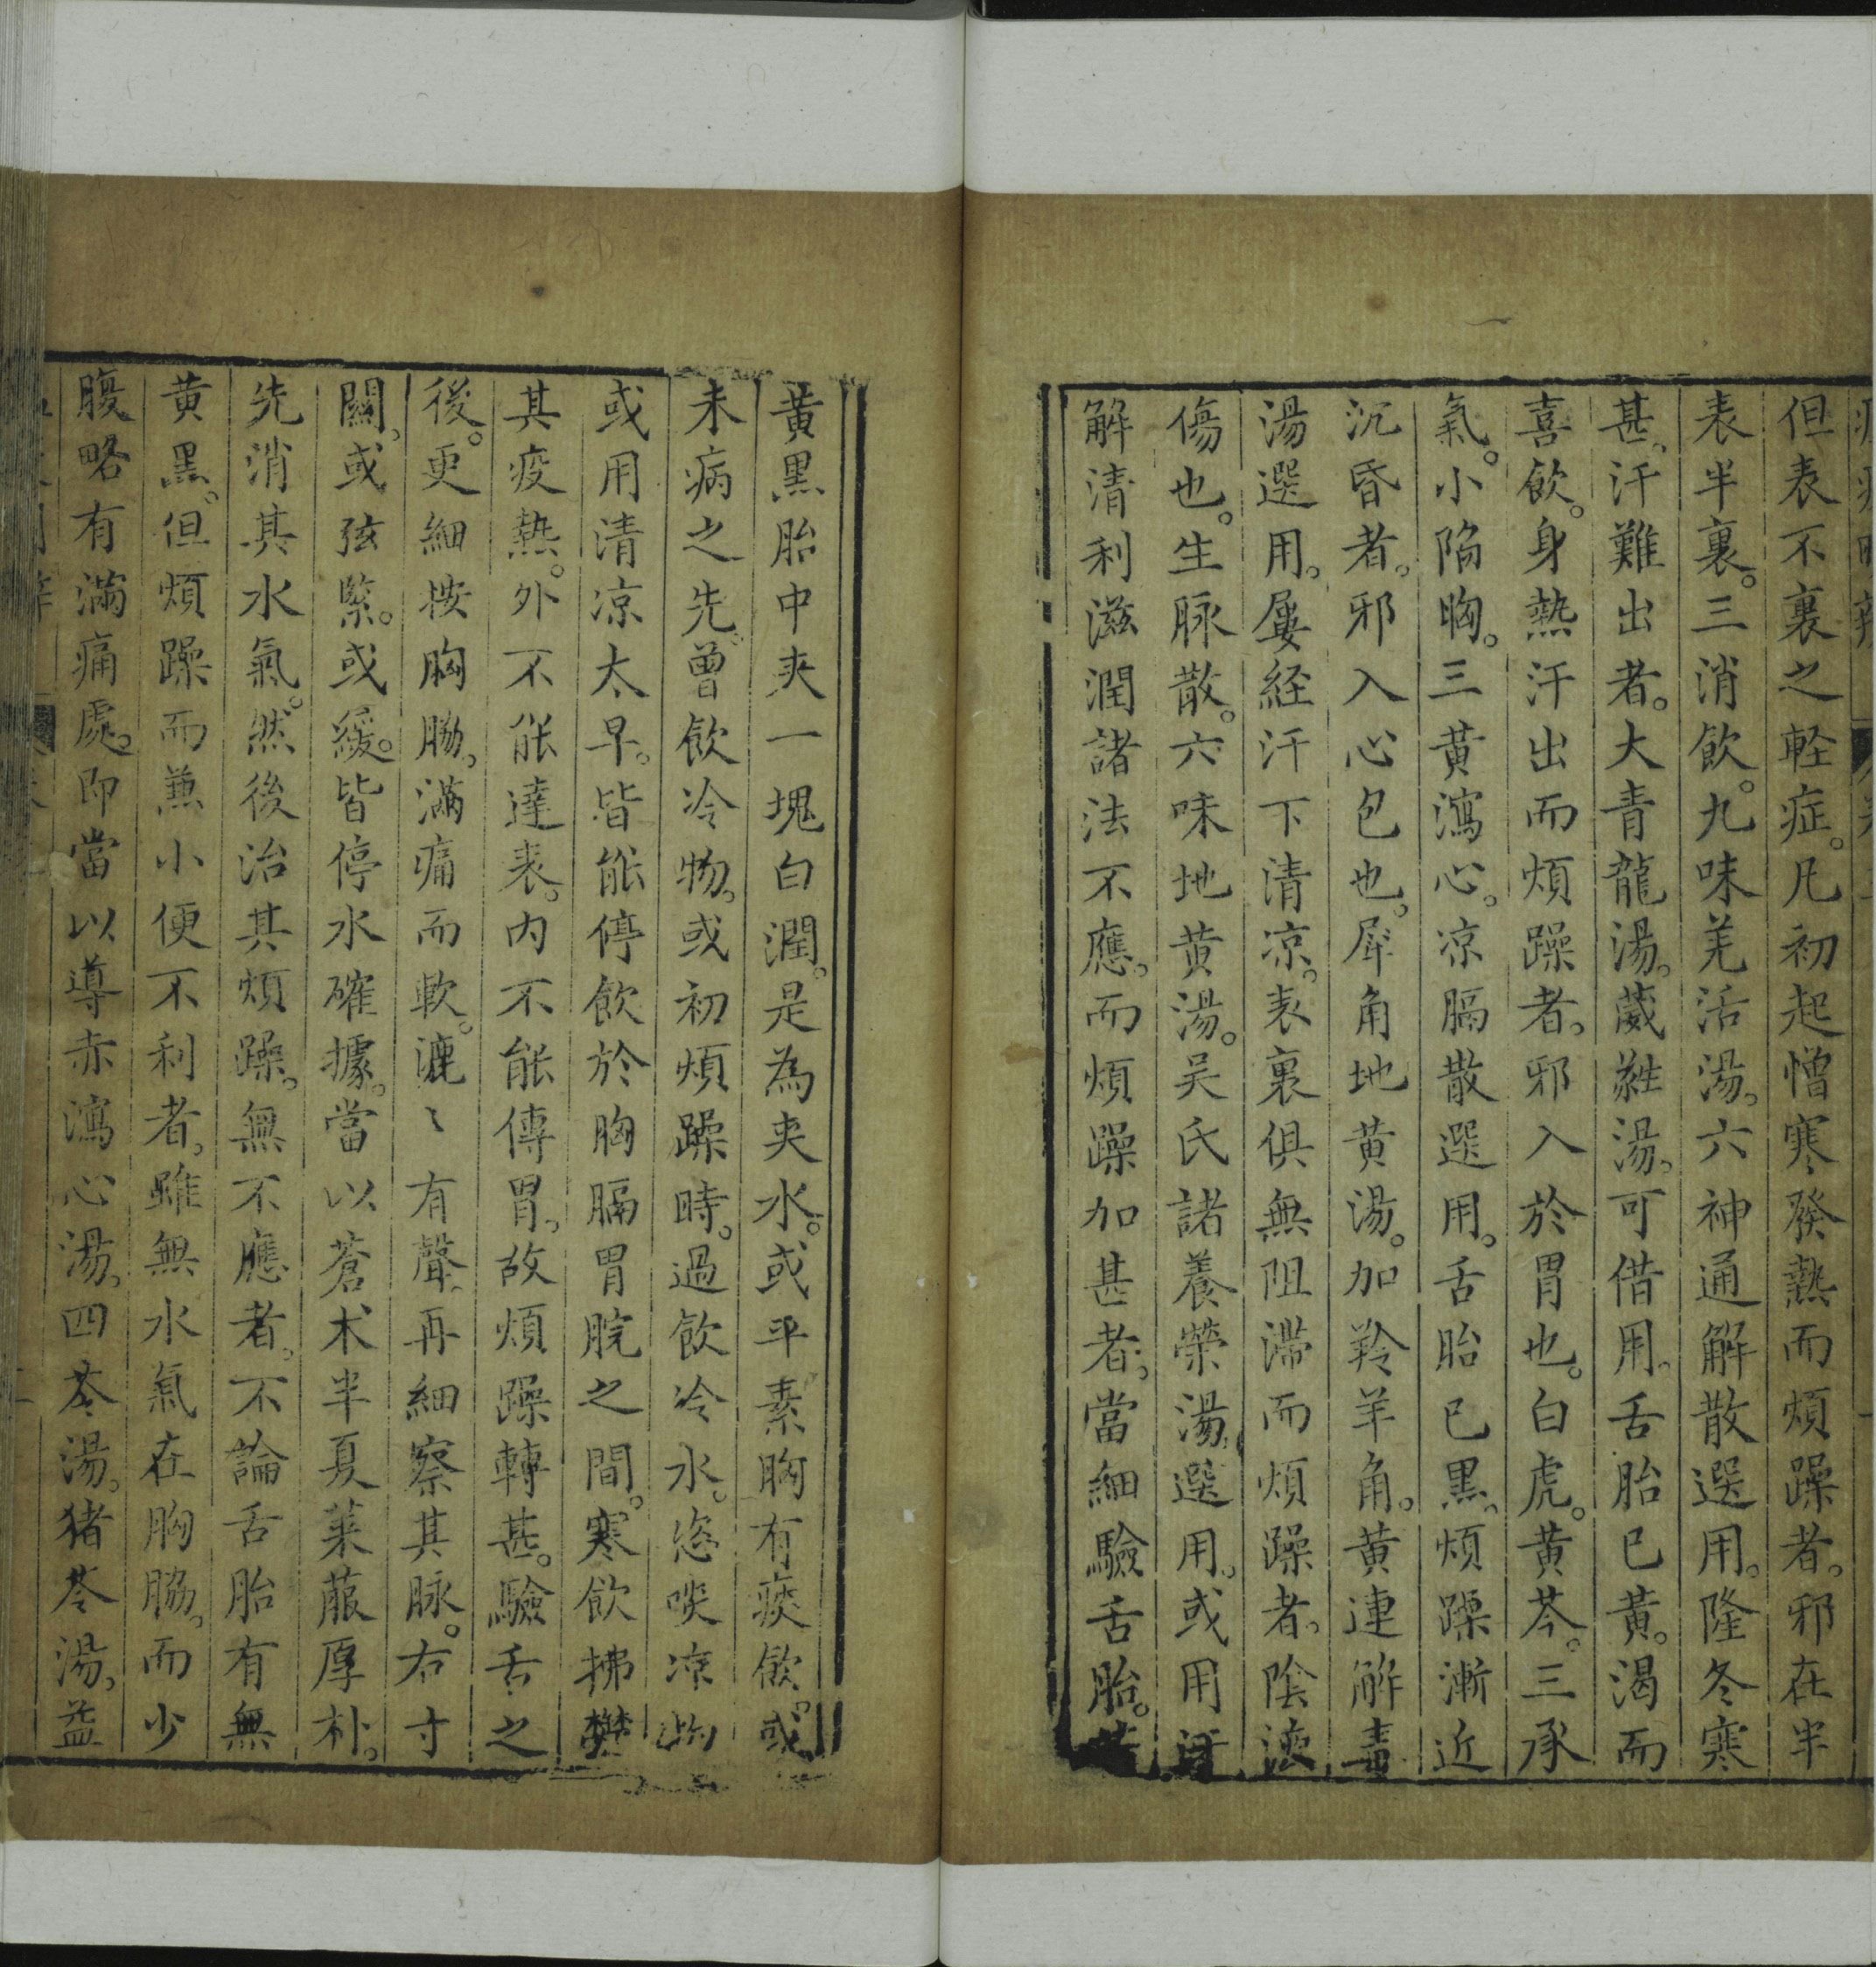 但表不裏之軽症。凡初起憎寒發熱而煩躁者。邪在半
表半裏。三消飲。九味羌活湯。六神通解散選用。隆冬寒
甚、汗難出者。大青龍湯。葳蕤湯。可借用。舌胎已黃。渴而
喜飲。身熱汗出而煩躁者。邪入於胃也。白虎。黃芩。三承
氣。小陷胸。三黃瀉心。凉膈散選用。舌胎已黑、煩躁漸近
沉昏者。邪入心包也。犀角地黃湯。加羚羊角。黃連解毒
湯選用。屢経汗下清凉。表裏俱無阻滯而煩躁者。陰液
傷也。生脉散。六味地黃湯。吳氏諸養榮湯選用。或用汗
解清利滋潤諸法不應。而煩躁加甚者。當細驗舌胎。若
黃黑胎中夾一塊白潤。是為夾水。或平素胸有痰飲。或
未病之先。曾飲冷物。或初煩躁時。過飲冷水。恣啖凉物
或用清凉太早。皆能停飲於胸膈胃脘之間。寒飲拂鬱
其疫熱。外不能達表。内不能傳胃。故煩躁轉甚。驗舌之
後。更細按胸脇。滿痛而軟。漉〻有聲。再細察其脉。右寸
關。或弦緊。或緩。皆停水確據。當以蒼术半夏萊菔厚朴。
先消其水氣。然後治其煩躁。無不應者。不論舌胎有無
黃黑。但煩躁而兼小便不利者。雖無水氣在胸脇。而少
腹略有滿痛處。即當以導赤瀉心湯。四苓湯。猪苓湯。益